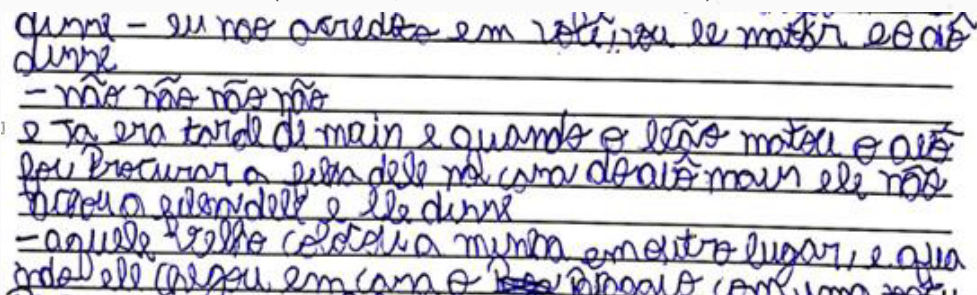 dinne - eu não acredito em você, vou le matar eo avô
dinne
- não não não não
e Ja era tarde di main e quando o leão matou o avô
foi Procurar a dele na cana do avô main ele não
achou a dele e ele dinne
- aquele velho colocou a minha em outro lugar, e qua
ndo ele chegou em cana o com uma